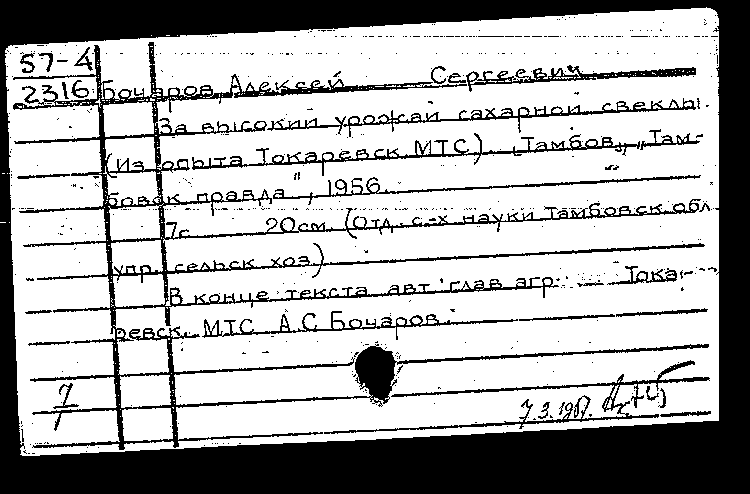 57-4
2316 Бочаров, Алексей Сергеевич
За высокий урожай сахарной свеклы.
(Из опыта Токаревск. МТС). Тамбов, „Там-
бовск. правда", 1956.
7с. 20см. (Отд. с.-х науки Тамбовск. обл.
упр. сельск. хоз.)
В конце текста авт: глав. агр. Тока-
ревск. МТС А.С. Бочаров.
7/1
7.3.1957.